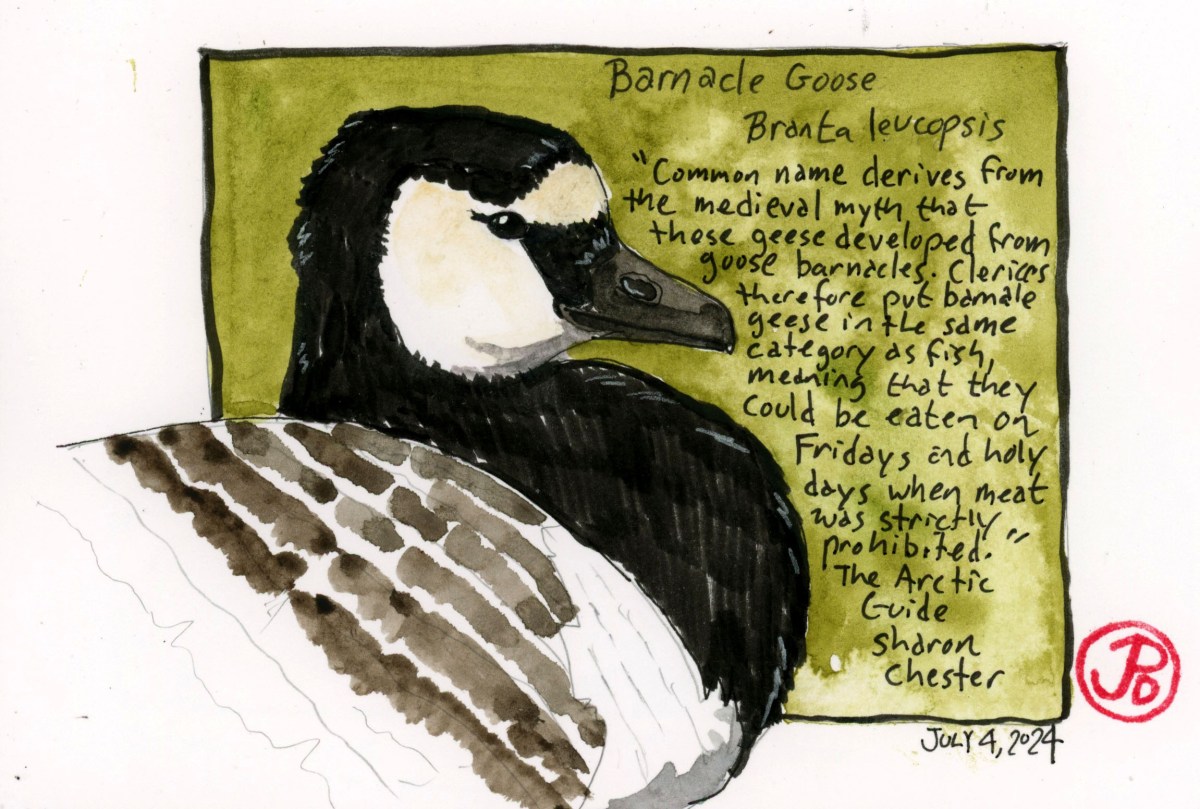 Barnacle Goose
Branta leucopsis
"Common name derives from
the medieval myth that
those geese developed from
goose barnacles. Clerices
therefore put barnale
geese in the same
category as fish,
meaning that they
could be eaten on
Fridays and holy
days when meat
was strictly
prohibited."
The Arctic
Guide
Sharon
Chester
JPD
JULY 4, 2024